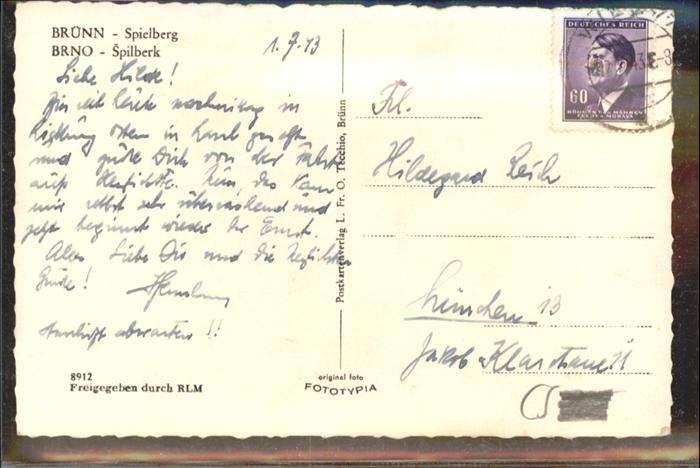 BRÜNN - Spielberg
BRNO - Špilberk
1.7.43
Liebe Hilde!
Bin seit heute nachmittag in
Richtung Osten in
und grüße Dich von der Fahrt
aufs herzlichste. das kam
mir selbst sehr überraschend und
jetzt beginnt wieder der Ernst.
Alles Liebe Dir und die herzlichsten
Grüße!
Anschrift abwarten!!
8912
Freigegeben durch RLM
Postkartenverlag L. Fr. O. Tecchio, Brünn
original foto
FOTOTYPIA
DEUTSCHES REICH
60
BÖHMEN U. MÄHREN
ČECHY A MORAVA
Frl.
Hildegard
München 13
Jakob Klarstraße